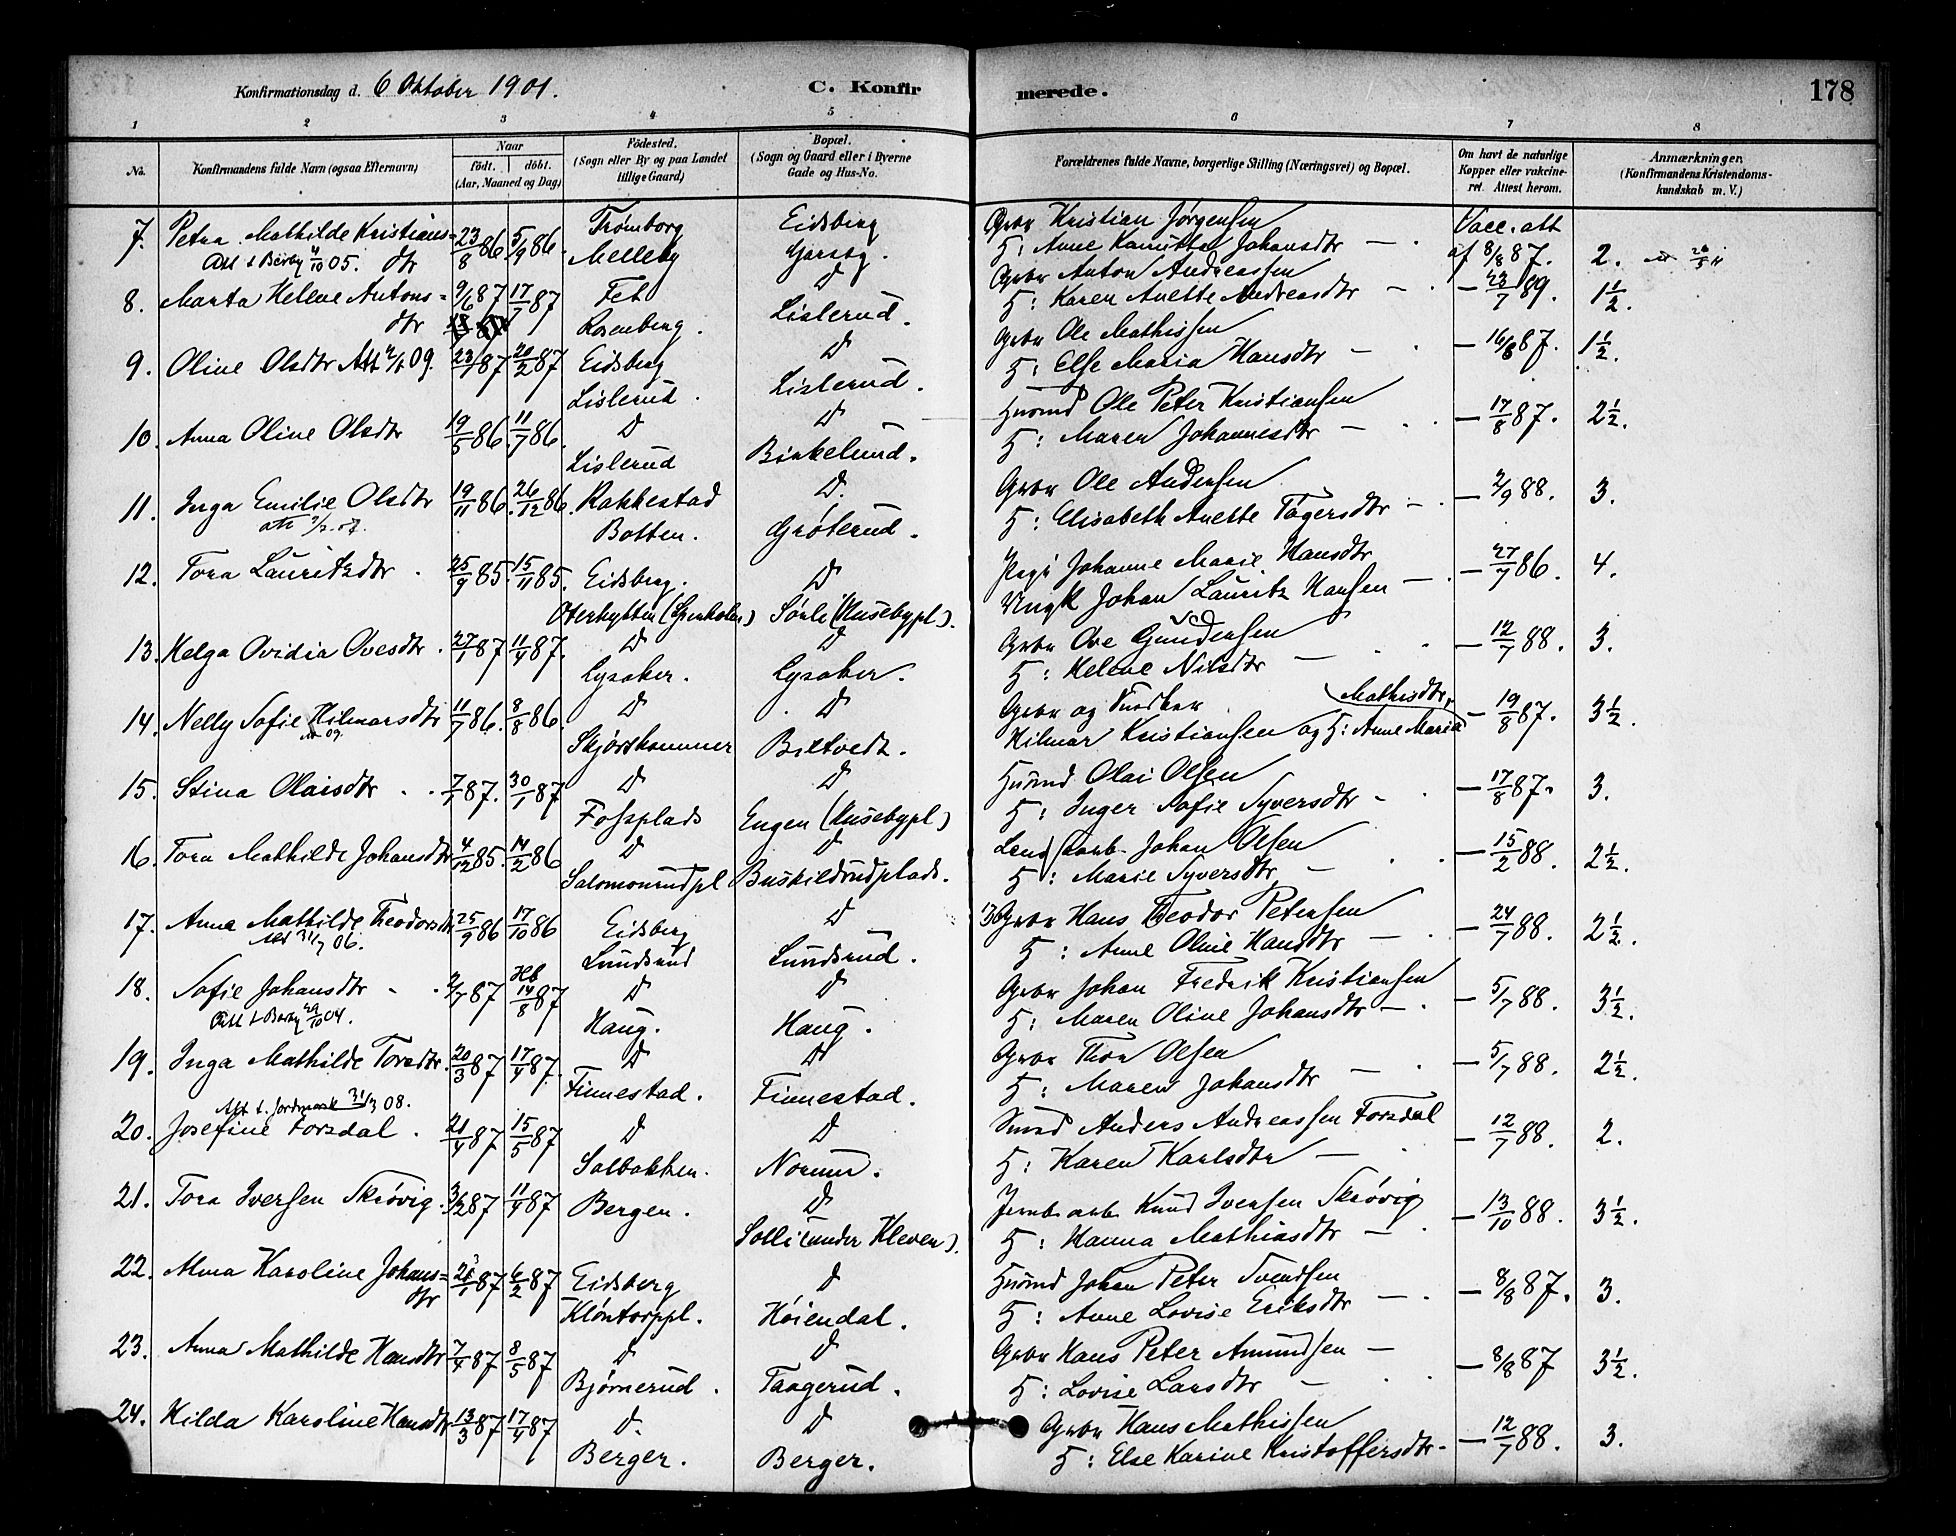 Konfirmationsdag d. 6 Oktober 1901.
C. Konfirmerede.
178
1 2 3 4 5 6 7 8
No.
Konfirmandens fulde Navn (ogsaa Efternavn)
Naar
født. døbt.
(Aar, Maaned og Dag)
Fødested.
(Sogn eller By og paa Landet
tillige Gaard)
Bopæl.
(Sogn og Gaard eller i Byerne
Gade og Hus-No.
Forældrenes fulde Navne, borgerlige Stilling (Næringsvei) og Bopæl.
Om havt de naturlige
Kopper eller vakcine-
ret. Attest herom.
Anmærkninger.
(Konfirmandens Kristendoms-
kundskab m. V.)
7. Petra Mathilde Kristians= 23/8 86. 5/9 86. Trømborg Eidsberg Grbr Kristian Jørgensen Vacc. att
Att t Børby 4/10 05. dtr Melleby H: Anne Johansdtr — af 8/8 87. 2.
8. Marta Helene Antons= 9/6 87 17/7 87 Fet D Grbr Anton Andreassen — 23/7 89. 1½.
dtr Rosenberg. Lislerud. H: Karen Anette Andreasdtr —
9. Oline Olsdtr Att 09. 23/1 87 20/2 87 Eidsberg D Grbr Ole Mathissen — 16/8 87. 1½.
Lislerud. Lislerud. H: Else Maria Hansdtr —
10. Anna Oline Olsdtr 19/5 86. 11/7 86. D D Husmd Ole Peter Kristiansen — 17/8 87. 2½.
Lislerud Birkelund. H: Maren Johannisdtr —
11. Inga Emilie Olsdtr 19/11 86. 26/12 86. Rakkestad D. Grbr Ole Andersen — 2/9 88. 3.
Botten. Grøterud. H: Elisabeth Anette Tagersdtr —
12. Tora Lauritzdtr. 25/9 85. 15/11 85. Eidsberg. D Pige Johanne Marie Hansdtr — 27/7 86. 4.
Oterhytten Sørli (Husebypl). Ungk Johan Lauritz Hansen —
13. Helga Ovidia Ovesdtr. 27/1 87 11/4 87. D D Grbr Ove Gundersen — 12/7 88. 3.
Lysaker. Lysaker. H: Helene Nilsdtr —
14. Nelly Sofie Hilmarsdtr 11/7 86. 8/8 86. D D Grbr og Snedker Mathisdtr. — 19/8 87. 3½.
09. Skjørshammer Hilmar Kristiansen og H: Anne Maria
15. Stina Olaisdtr 7/1 87. 30/1 87 D D Husmd Olai Olsen — 17/8 87. 3.
Fossplads Engen (Husebypl) H: Inger Sofie Syversdtr —
16. Tora Mathilde Johansdtr 4/12 85. 14/2 86 D D arb. Johan Olsen — 15/2 88. 2½.
Salomonrudpl Buskildrudplads. H: Marie Syversdtr —
17. Anna Mathilde Theodorsdtr 25/9 86 17/10 86 Eidsberg D Grbr Hans Theodor Petersen — 24/7 88. 2½.
Att 31/7 06. Lundsrud Lundsrud. H: Anne Oline Hansdtr —
18. Sofie Johansdtr 2/7 87 Hb 14/8 87 D D Grbr Johan Fredrik Kristiansen — 5/7 88. 3½.
Att t Børby 29/10 04. Haug. Haug. H: Maren Oline Johansdtr —
19. Inga Mathilde Torsdtr. 20/3 87 17/4 87. D D Grbr Thor Olsen — 5/7 88. 2½.
Finnestad. Finnestad. H: Maren Johansdtr —
Att t. Jordmark 31/3 08.
20. Josefine Forsdal. 21/4 87 15/5 87 D D Smed Anders Andreassen Forsdal — 12/7 88. 2.
Solbakken. Norum. H: Karen Karlsdtr —
21. Tora Iversen Skrøvig. 3/2 87 11/4 87 Bergen. D Jernb. arb. Knud Iversen Skrøvig — 13/10 88. 3½.
Solli (under Kleven). H: Hanna Mathiasdtr —
22. Alma Karoline Johans= 26/1 87 6/2 87 Eidsberg D Husmd Johan Peter Svendsen — 8/8 87. 3.
dtr Kløntorppl. Høiendal. H: Anne Lovise Eriksdtr —
23. Anna Mathilde Hansdtr 7/4 87 8/5 87 D D Grbr Hans Peter Amundsen — 8/8 87 3½.
Bjørnerud. Taagerud. H: Lovise Larsdtr —
24. Hilda Karoline Hansdtr 13/3 87 17/4 87 D. D Grbr Hans Mathissen — 12/7 88. 3.
Berger. Berger. H: Else Karine Kristoffersdtr —